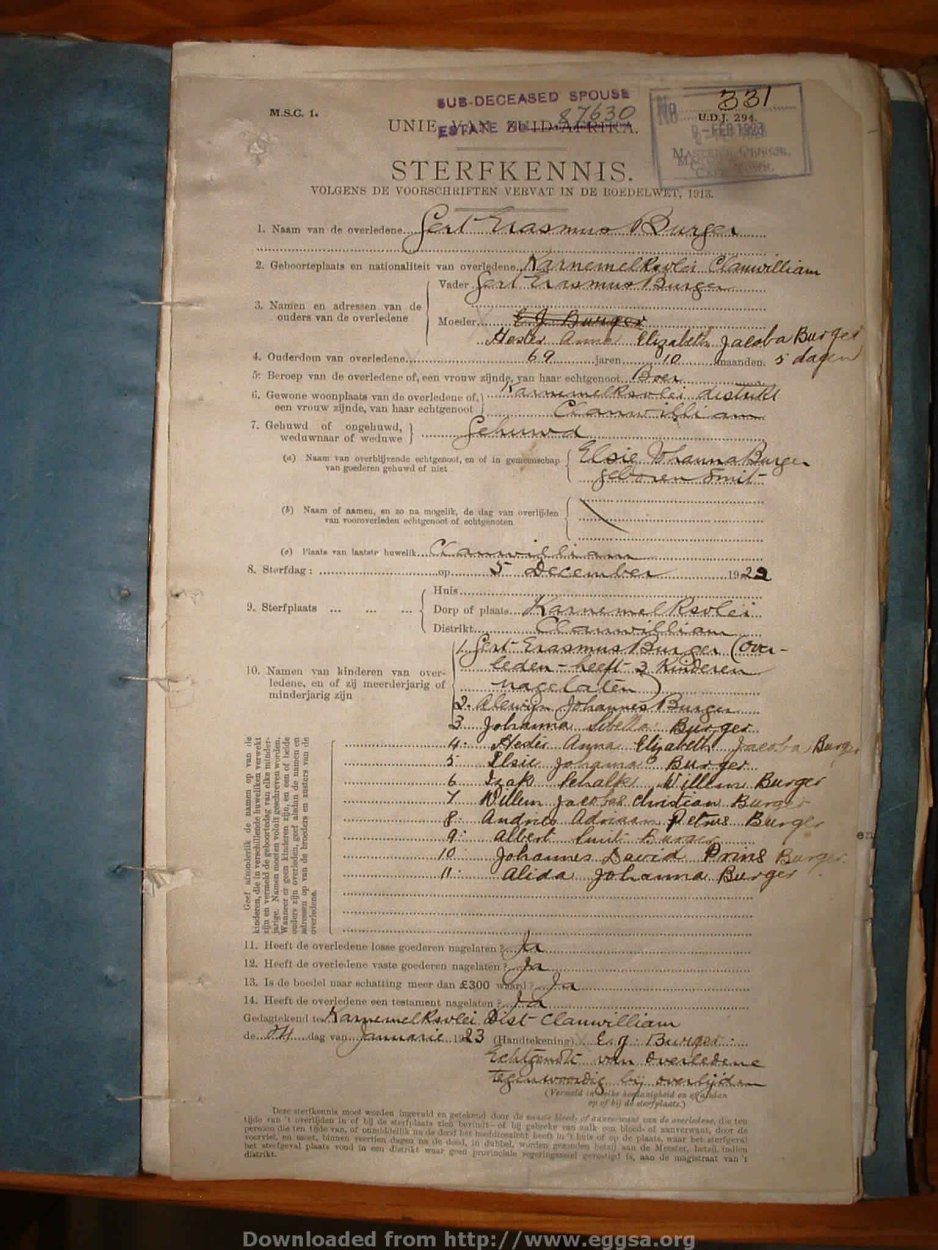 M.S.C. 1.
SUB-DECEASED SPOUSE
ESTATE No. 87630
UNIE VAN ZUID-AFRIKA.
No. 331
U.D.J. 294.
9 - FEB 1923
STERFKENNIS.
VOLGENS DE VOORSCHRIFTEN VERVAT IN DE BOEDELWET, 1913.
1. Naam van de overledene Gert Erasmus Burger
2. Geboorteplaats en nationaliteit van overledene Karnemelksvlei Clanwilliam
3. Namen en adressen van de ouders van de overledene
Vader Gert Erasmus Burger
Moeder E J Burger
Hester Anna Elizabeth Jacoba Burger
4. Ouderdom van overledene 69 jaren 10 maanden. 5 dagen
5. Beroep van de overledene of, een vrouw zijnde, van haar echtgenoot Boer
6. Gewone woonplaats van de overledene of, een vrouw zijnde, van haar echtgenoot
Karnemelksvlei distrikt
Clanwilliam
7. Gehuwd of ongehuwd, weduwnaar of weduwe } Gehuwd
(a) Naam van overblijvende echtgenoot, en of in gemeenschap van goederen gehuwd of niet
Elsie Johanna Burger
geboren Smit
(b) Naam of namen, en zo na mogelik, de dag van overlijden van vooroverleden echtgenoot of echtgenoten
(c) Plaats van laatste huwelik Clanwilliam
8. Sterfdag: op 5 December 1922
9. Sterfplaats ... ... ...
Huis
Dorp of plaats Karnemelksvlei
Distrikt Clanwilliam
10. Namen van kinderen van overledene, en of zij meerderjarig of minderjarig zijn
1. Gert Erasmus Burger (over-
leden - heeft 3 Kinderen
nagelaten)
2. Alewijn Johannes Burger
3 Johanna Sibella Burger
4. Hester Anna Elizabeth Jacoba Burger
5 Elsie Johanna Burger
6 Izak Schalk Willem Burger
7 Willem Jacobus Christian Burger
8. Andries Adriaan Petrus Burger
9. Albert Smit Burger
10 Johannes David Prins Burger
11. Alida Johanna Burger
Geef afzonderlik de namen op van de
kinderen, die in verschillende huweliken verwekt
zijn en vermeld de geboortedag van elke minder-
jarige. Namen moeten voluit geschreven worden.
Wanneer er geen kinderen zijn, en een of beide
ouders zijn overleden, geef alsdan de namen en
adressen op van de broeders en zusters van de
overledene.
11. Heeft de overledene losse goederen nagelaten? Ja
12. Heeft de overledene vaste goederen nagelaten? Ja
13. Is de boedel naar schatting meer dan £300 waard? Ja
14. Heeft de overledene een testament nagelaten? Ja
Gedagtekend te Karnemelksvlei Dist Clanwilliam
de dag van Januarie 1923 (Handtekening) E. J. Burger
Echtgenote van Overledene
Tegenwoordig bij overlijden
(Vermeld in welke hoedanigheid en of aldan
op of bij de sterfplaats.)
Deze sterfkennis moet worden ingevuld en getekend door de naaste bloed- of aanverwant van de overledene, die ten
tijde van 't overlijden in of bij de sterfplaats zich bevindt—of bij gebreke van zulk een bloed- of aanverwant, door de
persoon die ten tijde van, of onmiddellik na de dood het hoofdtoezicht heeft in 't huis of op de plaats, waar het sterfgeval
voorviel, en moet, binnen veertien dagen na de dood, in dubbel, worden gezonden hetzij aan de Meester, hetzij, indien
het sterfgeval plaats vond in een distrikt waar geen provinciale regeringszetel gevestigd is, aan de magistraat van 't
distrikt.
Downloaded from http://www.eggsa.org